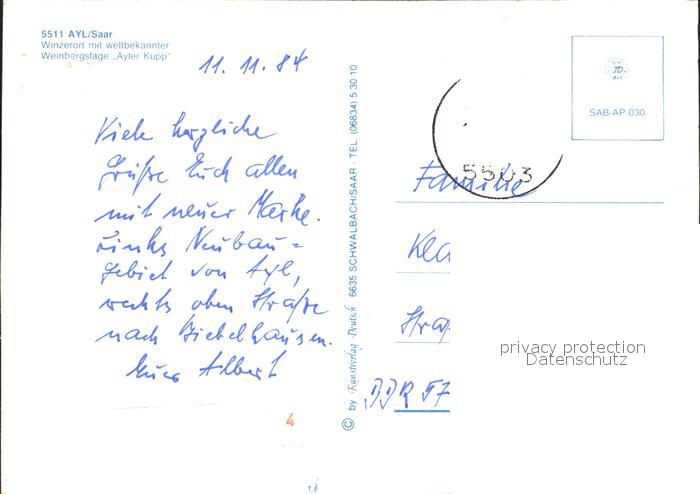 5511 AYL/Saar
Winzerort mit weltbekannter
Weinbergslage „Ayler Kupp"
11. 11. 84
Viele herzliche
Grüße Euch allen
mit neuer Marke.
Links Neubau=
gebiet von Ayl,
rechts oben Straße
nach Biebelhausen.
Euer Albert
4
© by Kunstverlag Deutsch 6635 SCHWALBACH/SAAR - TEL. (06834) 5 30 10
SAB-AP-030
5503
Familie
Kla
Straß
DDR 57
privacy protection
Datenschutz